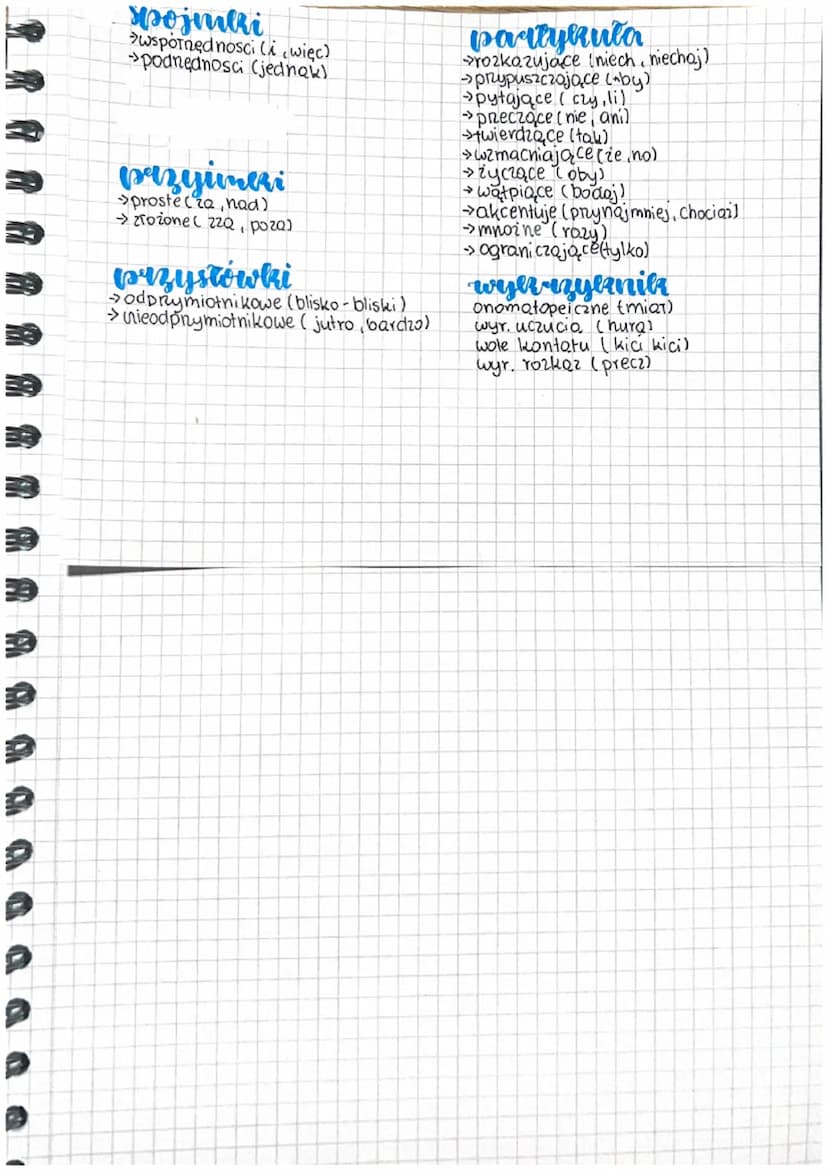 spójniki
→współrzędności (i, więc)
→podrzędności (jednak)
przyimki
→proste (za, nad)
→ złożone ( zza, poza)
przysłówki
→ odprzymiotnikowe (blisko - bliski)
→ nieodprzymiotnikowe ( jutro, bardzo)
partykuła
→rozkazujące (niech, niechaj)
→przypuszczające (+by)
→pytające ( czy, li)
→przeczące (nie, ani)
→twierdzące (tak)
→wzmacniające (że, no)
→ życzące (oby)
→ wątpiące (bodaj)
→akcentuje (przynajmniej, chociaż)
→mnożne (razy)
→ ograniczające (tylko)
wykrzyknik
onomatopeiczne (miał)
wyr. uczucia (hura)
wole kontatu ( kici kici)
wyr. rozkaz (precz)